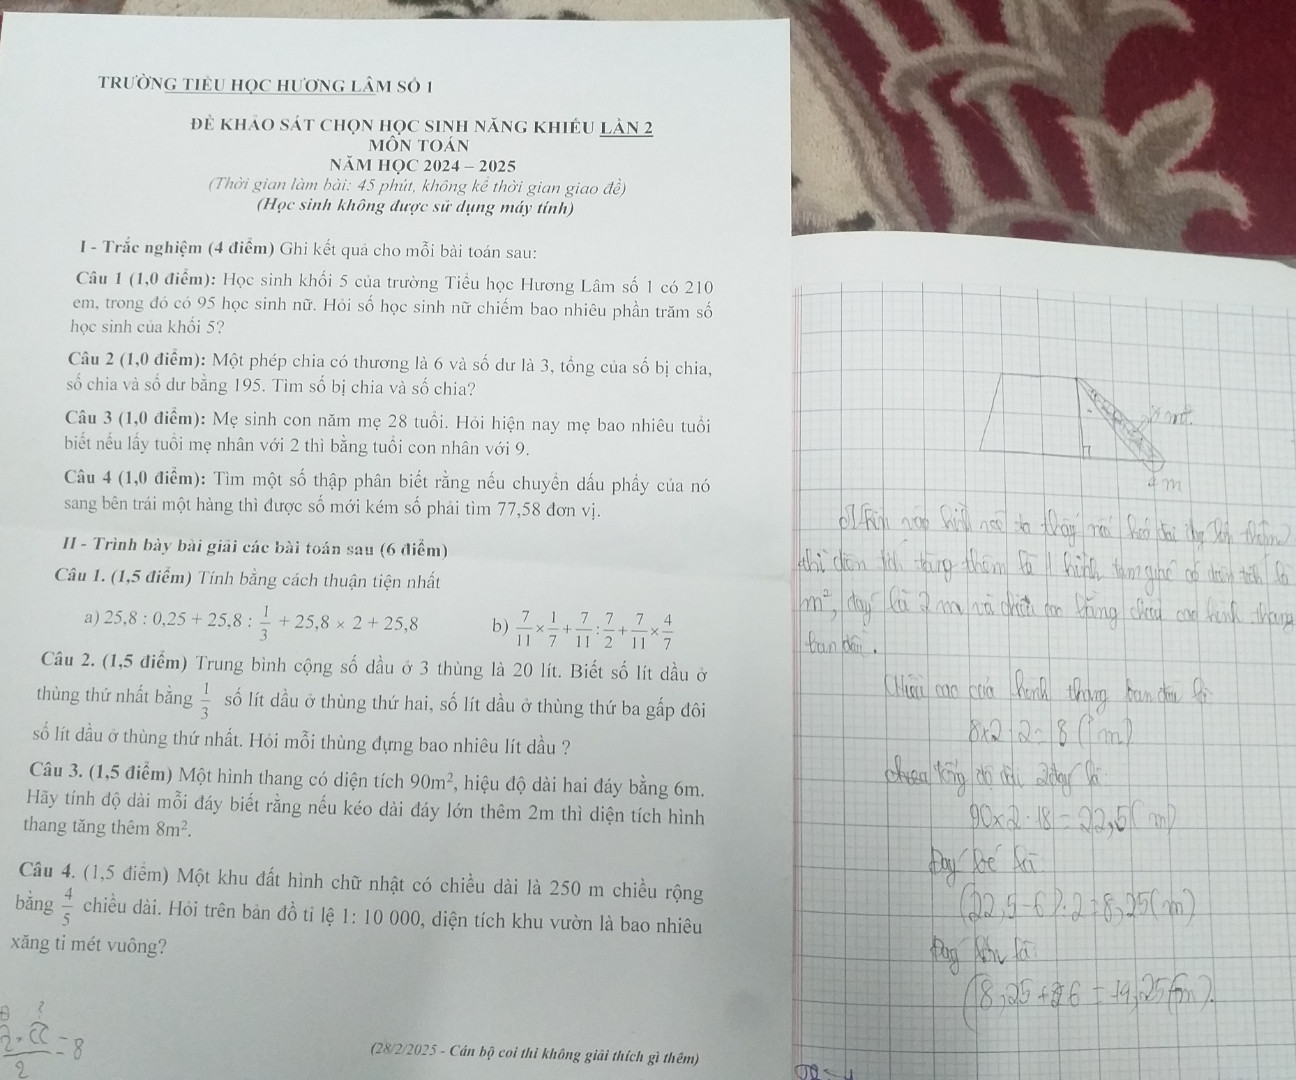 TRƯỜNG TIỂU HỌC HƯƠNG LÂM SỐ 1
ĐỀ KHẢO SÁT CHỌN HỌC SINH NĂNG KHIẾU LẦN 2
MÔN TOÁN
NĂM HỌC 2024 – 2025
(Thời gian làm bài: 45 phút, không kể thời gian giao đề)
(Học sinh không được sử dụng máy tính)
I - Trắc nghiệm (4 điểm) Ghi kết quả cho mỗi bài toán sau:
Câu 1 (1,0 điểm): Học sinh khối 5 của trường Tiểu học Hương Lâm số 1 có 210
em, trong đó có 95 học sinh nữ. Hỏi số học sinh nữ chiếm bao nhiêu phần trăm số
học sinh của khối 5?
Câu 2 (1,0 điểm): Một phép chia có thương là 6 và số dư là 3, tổng của số bị chia,
số chia và số dư bằng 195. Tìm số bị chia và số chia?
Câu 3 (1,0 điểm): Mẹ sinh con năm mẹ 28 tuổi. Hỏi hiện nay mẹ bao nhiêu tuổi
biết nếu lấy tuổi mẹ nhân với 2 thì bằng tuổi con nhân với 9.
Câu 4 (1,0 điểm): Tìm một số thập phân biết rằng nếu chuyển dấu phẩy của nó
sang bên trái một hàng thì được số mới kém số phải tìm 77,58 đơn vị.
II - Trình bày bài giải các bài toán sau (6 điểm)
Câu 1. (1,5 điểm) Tính bằng cách thuận tiện nhất
a) 25,8 : 0,25 + 25,8 : 1/3 + 25,8 × 2 + 25,8 b) 7/11 × 1/7 + 7/11 : 7/2 + 7/11 × 4/7
Câu 2. (1,5 điểm) Trung bình cộng số dầu ở 3 thùng là 20 lít. Biết số lít dầu ở
thùng thứ nhất bằng 1/3 số lít dầu ở thùng thứ hai, số lít dầu ở thùng thứ ba gấp đôi
số lít dầu ở thùng thứ nhất. Hỏi mỗi thùng đựng bao nhiêu lít dầu ?
Câu 3. (1,5 điểm) Một hình thang có diện tích 90m², hiệu độ dài hai đáy bằng 6m.
Hãy tính độ dài mỗi đáy biết rằng nếu kéo dài đáy lớn thêm 2m thì diện tích hình
thang tăng thêm 8m².
Câu 4. (1,5 điểm) Một khu đất hình chữ nhật có chiều dài là 250 m chiều rộng
bằng 4/5 chiều dài. Hỏi trên bản đồ tỉ lệ 1: 10 000, diện tích khu vườn là bao nhiêu
xăng ti mét vuông?
(28/2/2025 - Cán bộ coi thi không giải thích gì thêm)
= 8
2
m
thì diện tích tăng thêm là 1 hình tam giác có diện tích là
m², đáy là 2 m và chiều cao bằng chiều cao hình thang
ban đầu.
Chiều cao của hình thang ban đầu là
8x2:2=8 (m)
tổng độ dài 2 đáy là
90x2:18=22,5(m)
Đáy bé là
(22,5-6):2=8,25(m)
Đáy lớn là
8,25+6=14,25(m).